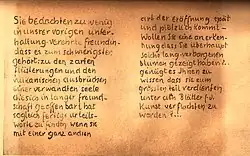 Sie bedachten zu wenig
in unsrer vorigen unter-
haltung verehrte freundin
dass es zum schwierigsten
gehört: zu den zarten
fiticierungen und den
vulkanischen ausbrüchen
einer verwandten seele
die sich in langer freund-
schaft geoffenbart hat
sogleich fertige urteils-
worte zu finden wenn sie
mit einer ganz andren
art der eröffnung spät
und plötzlich kommt –
Wollen Sie eine an erken-
nung dass Sie überhaupt
solche lang verborgenen
blumen gezeigt haben?..
genügt es Ihnen zu
wissen dass sie zum
grossen teil verdienten
unter den Blättern f. d.
Kunst verflochten zu
werden?!..